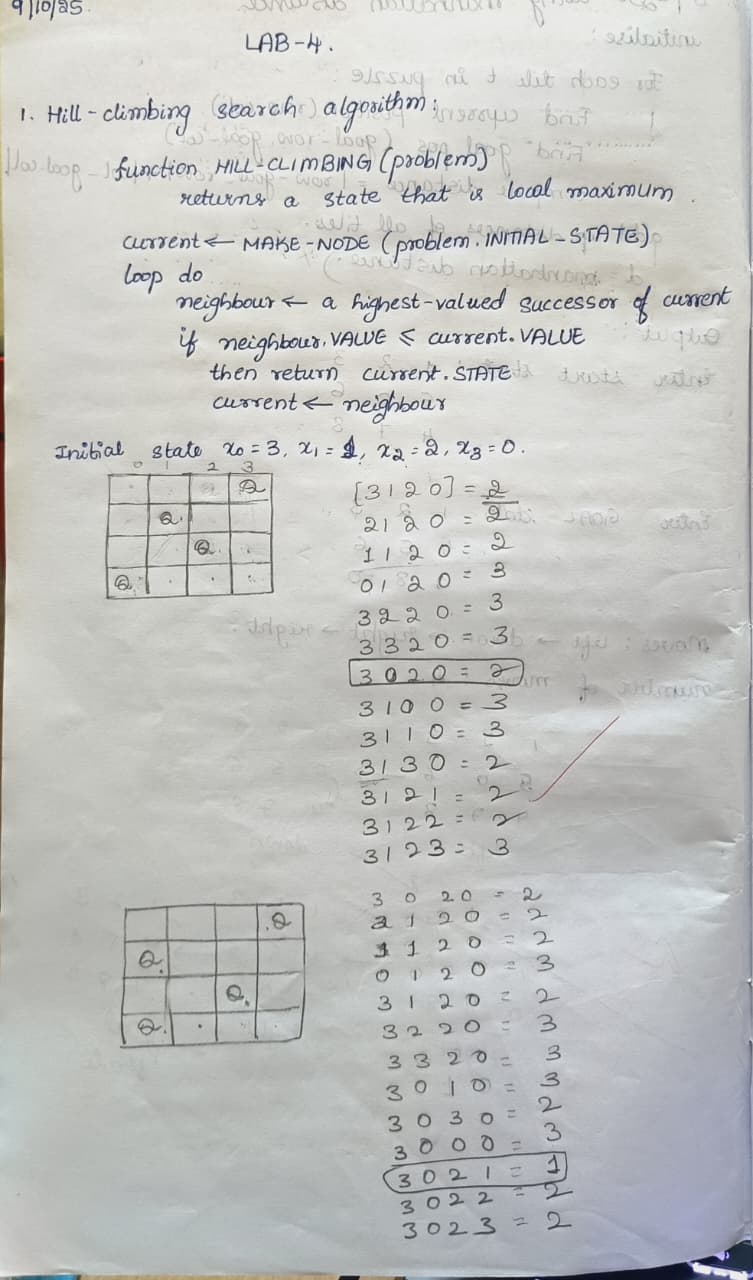 9/10/25.
LAB-4.
1. Hill-climbing search algorithm:
function HILL-CLIMBING (problem)
returns a state that is local maximum.
current ← MAKE-NODE (problem. INITIAL-STATE)
loop do
neighbour ← a highest-valued successor of current
if neighbour. VALUE ≤ current. VALUE
then return current. STATE
current ← neighbour
Initial state x0 = 3, x1 = 1, x2 = 2, x3 = 0.
0 1 2 3
Q
Q.
Q.
Q.
[3120] = 2
2120 = 2
1120 = 2
0120 = 3
3220 = 3
3320 = 3
3020 = 2
3100 = 3
3110 = 3
3130 = 2
3121 = 2
3122 = 2
3123 = 3
.Q
Q.
Q.
Q.
3020 = 2
2120 = 2
1120 = 2
0120 = 3
3120 = 2
3220 = 3
3320 = 3
3010 = 3
3030 = 2
3000 = 3
3021 = 1
3022 = 2
3023 = 2